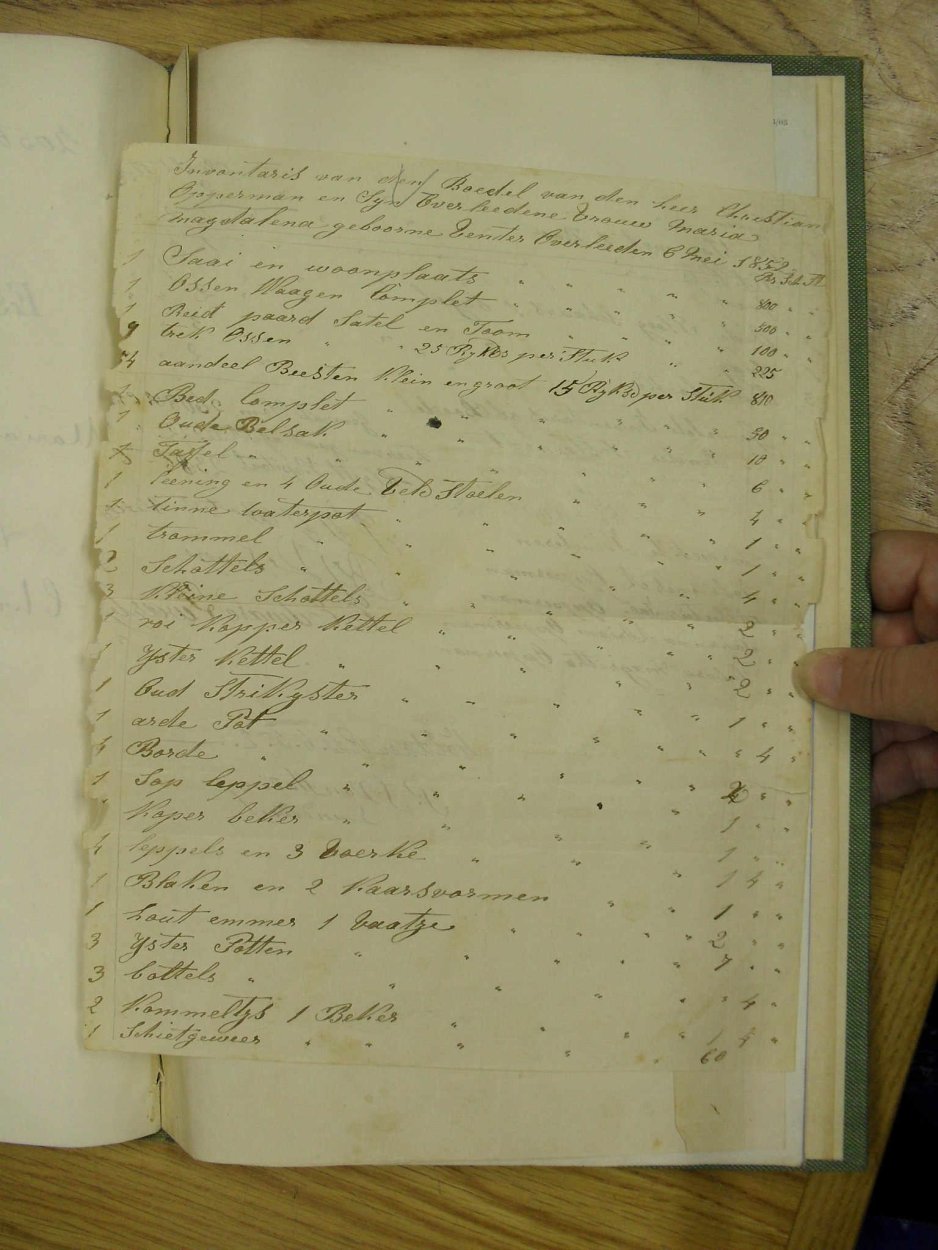 Inventaris van den Boedel van den heer Christian
Opperman en Syn Overleedene Vrouw Maria
Magdalena geboorne Venter Overleeden 6 Mei 1852
Rs St
1 Saai en woonplaats " " " " 800 "
1 Ossen Waagen Complet " " " 500 "
1 Reid paard Satel en Toom " " 100 "
9 trek Ossen " " 25 Rykds per Stuk 225
54 aandeel Beesten klein en groot 15 Ryksd per Stuk 810
1 Bed Complet " " " " " 50 " "
1 Oude Belsak " " " " " 10 " "
Taffel " " " " " 6 " "
1 leening en 4 Oude Veld Stoelen " " " 4 " "
tinne waterpot " " " " " 1 " "
1 trommel " " " " " 1 " "
2 Schottels " " " " " 4 " "
3 Kleine Schottels " " " " " 2 " "
1 roi Kopper Kettel " " " " 2
1 Yster Kettel " " " " " 2
1 Oud Strikyster " " " " " 1 " "
1 arde Pot " " " " " " 4 "
4 Borde " " " " "
1 Sop leppel " " " " " "
" Koper beker " " " " 1 " "
4 leppels en 3 Voerke " " " 1 " "
1 Blaken en 2 Kaarsvormen " " 1 4 "
1 hout emmer 1 Vaatze " " " 1 " "
3 Yster Potten " " " " 2 " "
3 bottels " " " " " " 4 "
2 Kommeltys 1 Beker " " " 1 4 "
1 Schietgeweer " " " " 60
1/03